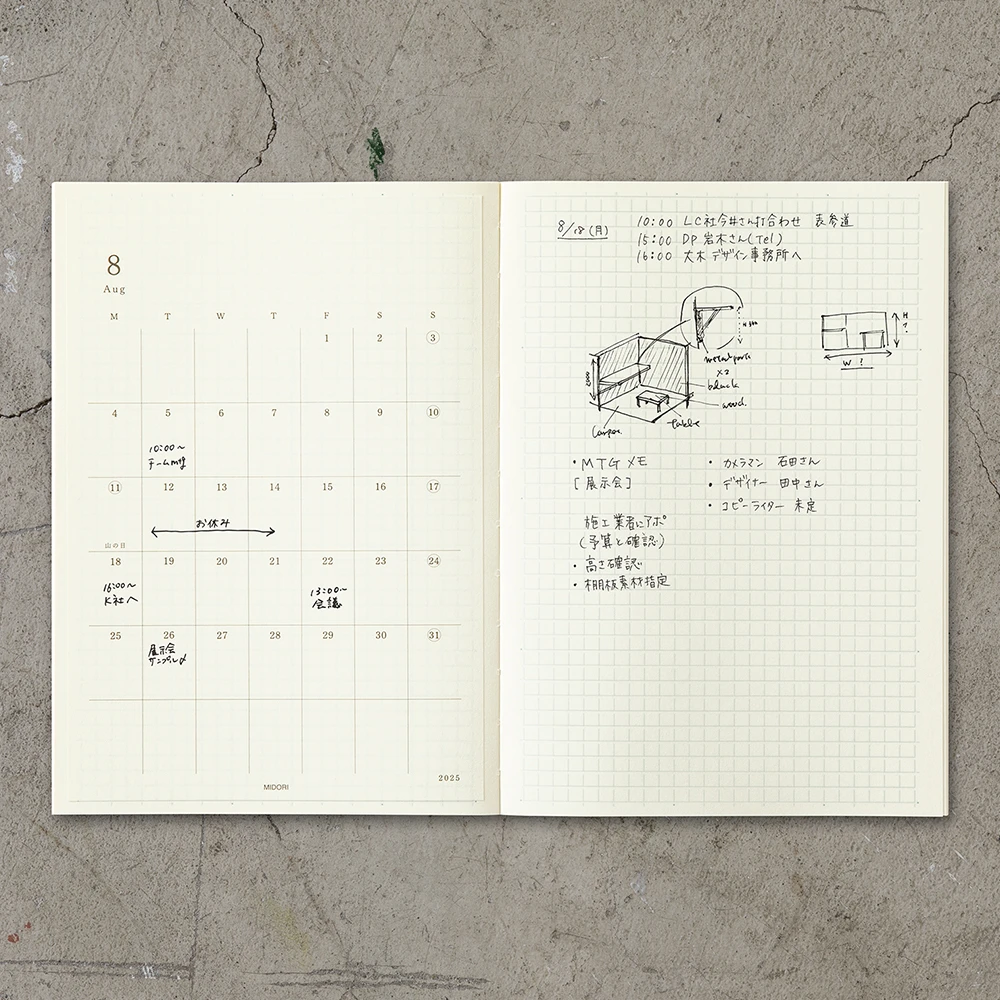 8
Aug
M T W T F S S
1 2 3
4 5 6 7 8 9 10
10:00〜
チームmtg
11 12 13 14 15 16 17
お休み
山の日
18 19 20 21 22 23 24
16:00〜
K社へ
13:00〜
会議
25 26 27 28 29 30 31
展示会
サンプル〆
2025
MIDORI
8/18(月)
10:00 LC社今井さん打合わせ 表参道
15:00 DP 岩木さん(Tel)
16:00 大木デザイン事務所へ
H
?
W ?
metal parts
×2
black
wood.
table
・MTG メモ
[展示会]
施工業者にアポ
(予算と確認)
・高さ確認
・棚板素材指定
・カメラマン 石田さん
・デザイナー 田中さん
・コピーライター 未定